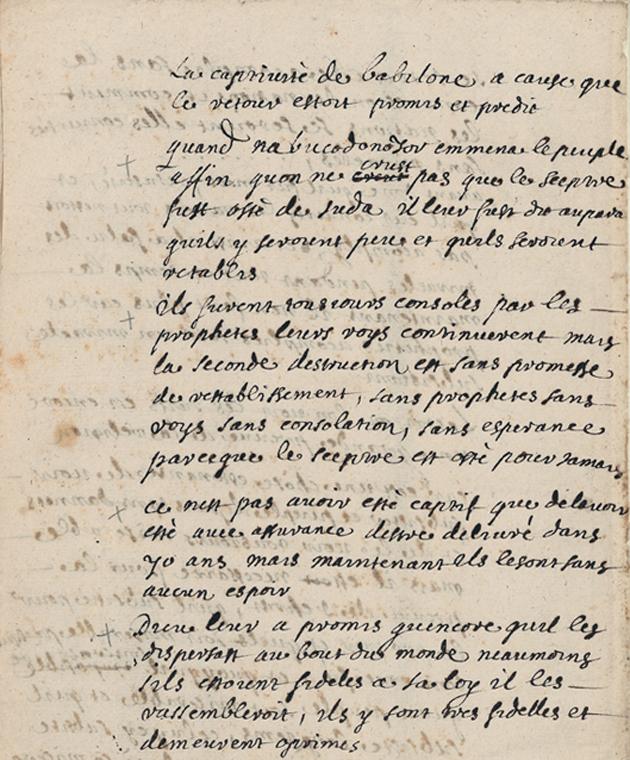 La captiuité de babilone a cause que
le retour estoit promis et predit
quand nabucodonosor emmena le peuple
affin quon ne creust pas que le sceptre
fust osté de Juda il leur fust dit aupara
quils y seroient peu et quils seroient
retablis
Ils furent tousiours consoles par les
prophetes leurs roys continuerent mais
la seconde destruction est sans promesse
de restablissement, sans prophetes sans
roys sans consolation, sans esperance
parceque le sceptre est osté pour Jamais
ce nest pas auoir esté captif que de lauoir
esté auec assurance destre deliuré dans
70 ans mais maintenant Ils le sont sans
aucun espoir
Dieu leur a promis quencore quil les
dispersast au bout du monde neaumoins
sils estoient fideles a sa loy il les
rassembleroit, ils y sont tres fidelles et
demeurent oprimes